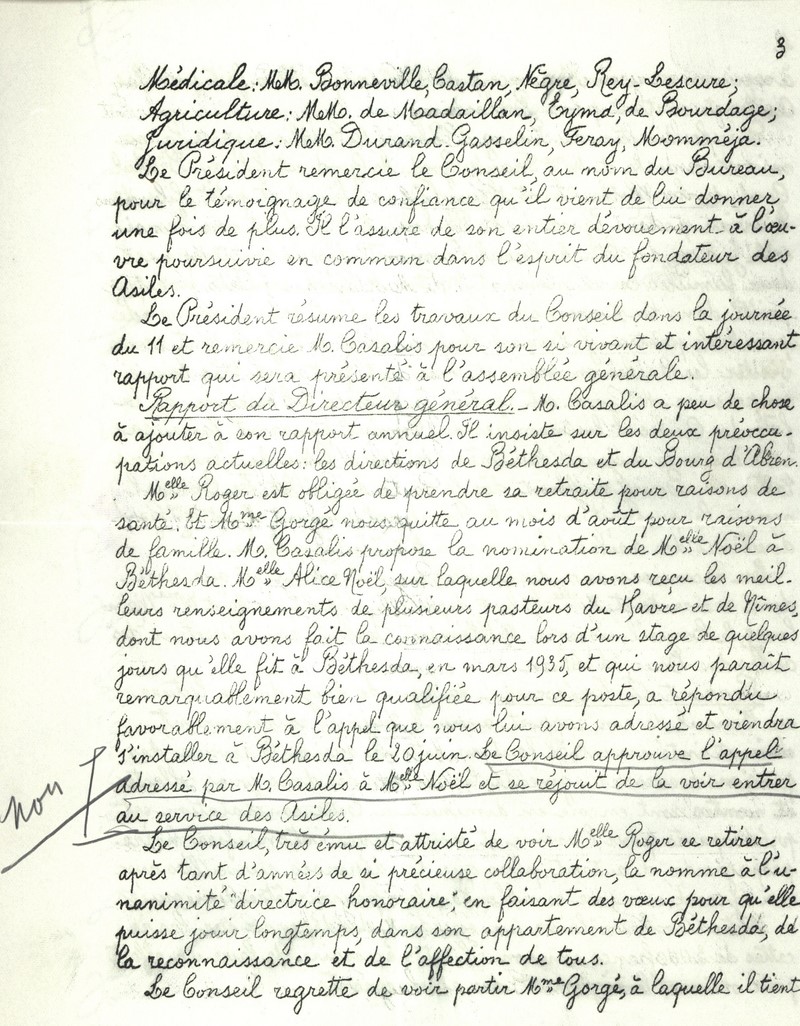 3
Médicale: MM. Bonneville, Castan, Nègre, Rey-Lescure;
Agriculture: MM. de Madaillan, Eyma, de Bourdage;
Juridique: MM. Durand-Gasselin, Feray, Momméja.
Le Président remercie le Conseil, au nom du Bureau,
pour le témoignage de confiance qu'il vient de lui donner
une fois de plus. Il l'assure de son entier dévouement à l'œu-
vre poursuivie en commun dans l'esprit du fondateur des
Asiles.
Le Président résume les travaux du Conseil dans la journée
du 11 et remercie M. Casalis pour son si vivant et intéressant
rapport qui sera présenté à l'assemblée générale.
Rapport du Directeur général. - M. Casalis a peu de chose
à ajouter à son rapport annuel. Il insiste sur les deux préoccu-
pations actuelles: les directions de Béthesda et du Bourg d'Abren.
Melle Roger est obligée de prendre sa retraite pour raisons de
santé. Et Mme Gorgé nous quitte au mois d'août pour raisons
de famille. M. Casalis propose la nomination de Melle Noël à
Béthesda. Melle Alice Noël, sur laquelle nous avons reçu les meil-
leurs renseignements de plusieurs pasteurs du Havre et de Nîmes,
dont nous avons fait la connaissance lors d'un stage de quelques
jours qu'elle fit à Béthesda, en mars 1935, et qui nous paraît
remarquablement bien qualifiée pour ce poste, a répondu
favorablement à l'appel que nous lui avons adressé et viendra
s'installer à Béthesda le 20 juin. Le Conseil approuve l'appel
adressé par M. Casalis à Melle Noël et se réjouit de la voir entrer
au service des Asiles.
non
Le Conseil, très ému et attristé de voir Melle Roger se retirer
après tant d'années de si précieuse collaboration, la nomme à l'u-
nanimité "directrice honoraire", en faisant des vœux pour qu'elle
puisse jouir longtemps, dans son appartement de Béthesda, de
la reconnaissance et de l'affection de tous.
Le Conseil regrette de voir partir Mme Gorgé, à laquelle il tient